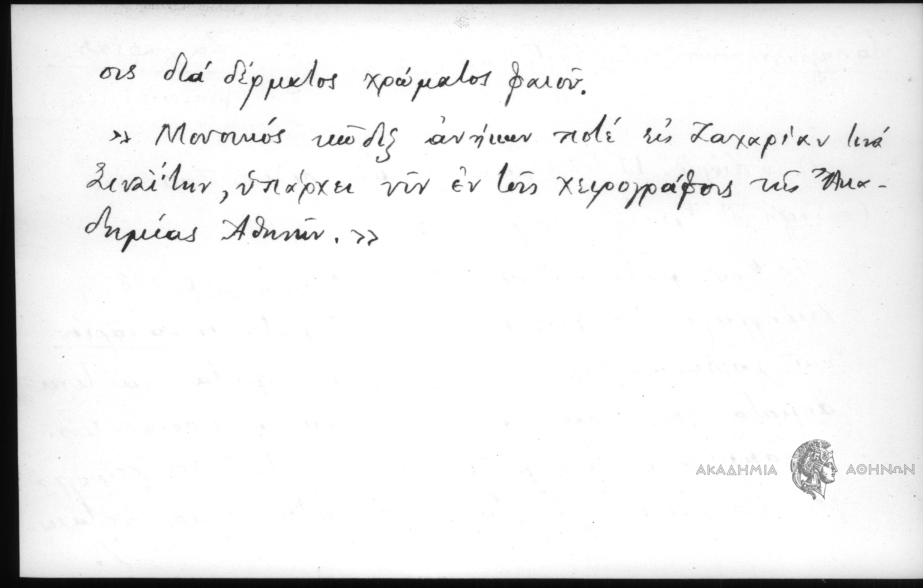 σις διά δέρματος χρώματος φαιοῦ.
» Μουσικός κῶδιξ ἀνήκων ποτέ εἰς Ζαχαρίαν τινά
Σιναΐτην, ὑπάρχει νῦν ἐν τοῖς χειρογράφοις τῆς Ἀκα-
δημίας Ἀθηνῶν. »
ΑΚΑΔΗΜΙΑ ΑΘΗΝΩΝ